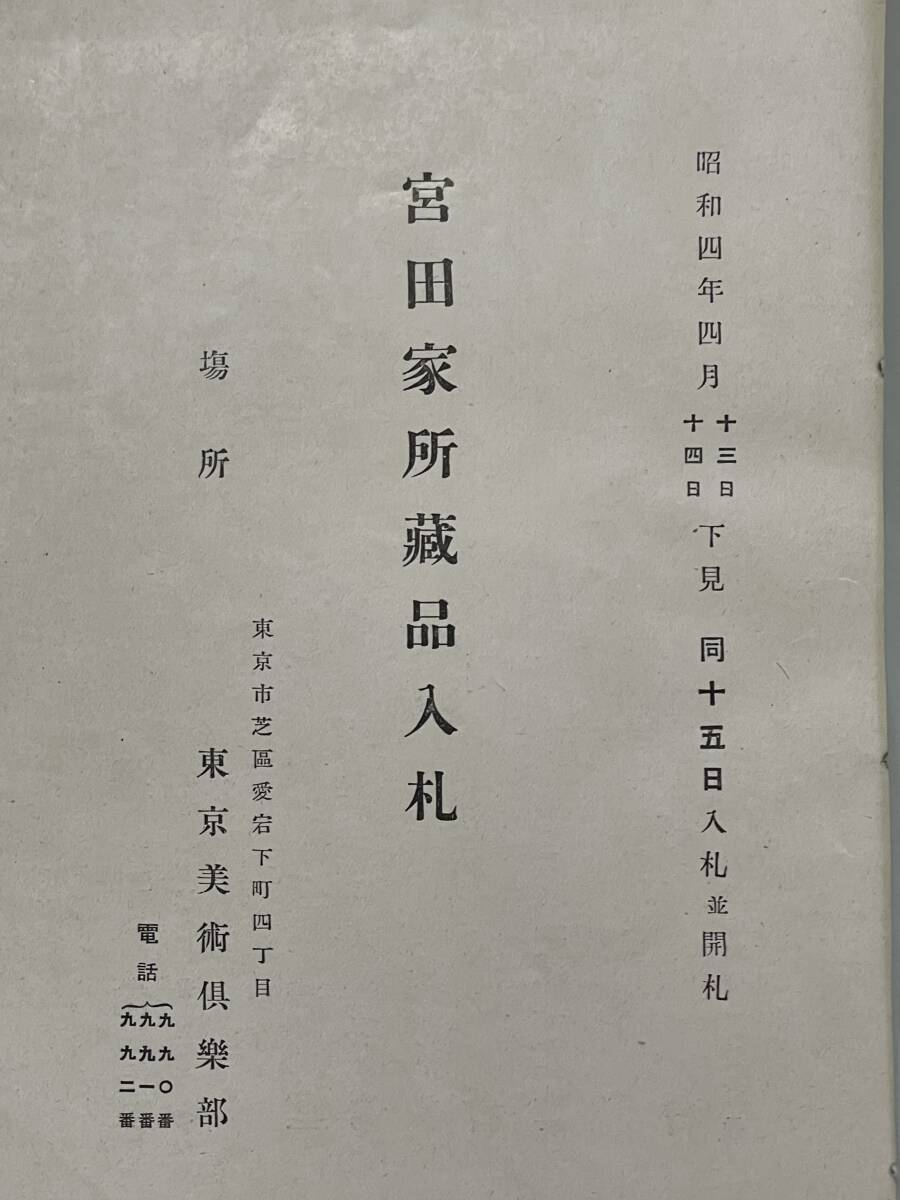 昭和四年四月十三日十四日下見 同十五日入札並開札
宮田家所藏品入札
場所
東京市芝區愛宕下町四丁目
東京美術倶樂部
電話
九九〇番
九九一番
九九二番